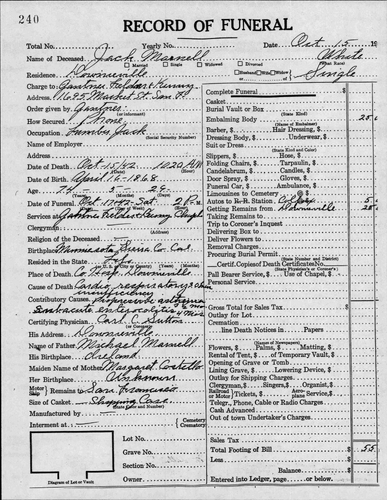 240
RECORD OF FUNERAL
Total No. Yearly No. Date Oct. 15 19
Name of Deceased Jack Marnell White
(What Race)
Married Single Widowed Divorced
Residence Downieville Husband Wife Widow Single
Charge to Gantner, Felder & Kenny
Address 1695 Market St. San Fr.
Order given by Gantner
(or informant)
How Secured Phone
Occupation Lumber Jack
(Social Security Number)
Name of Employer
Address
Date of Death Oct-15/42 10:20 AM
(Hour)
Date of Birth April-16-1868
Age 74 - 5 - 29
(Years) (Months) (Days)
Date of Funeral Oct-17-42 Sat. 2 P.M.
Services at Gantner Felder & Kenny Chapel
Clergyman
Religion of the Deceased
Birthplace Minnesota
Resided in the State
Place of Death Co Hosp. Downieville
Cause of Death Cardio respiratory
insufficiency
Contributory Causes
subacute enterocolitis
Certifying Physician Carl C. Sutton
His Address Downieville
Name of Father Michael Marnell
His Birthplace Ireland
Maiden Name of Mother Margaret Costello
Her Birthplace Unknown
Motor Ship Remains to San Francisco
Size of Casket Shipping Case
(State Color and Number)
Manufactured by
Interment at Cemetery
Crematory
Lot No.
Grave No.
Section No.
Owner
Diagram of Lot or Vault
Complete Funeral
Casket
Burial Vault or Box
(State Kind)
Embalming Body 25.0
(Name of Embalmer)
Barber, $ Hair Dressing, $
Dressing Body, $ Underwear, $
Suit or Dress
(State Kind)
Slippers, $ Hose, $
Folding Chairs, $ Tarpaulin, $
Candelabrum, $ Candles, $
Door Spray, $ Gloves, $
Funeral Car, $ Ambulance, $
Limousines to Cemetery @ $
Autos to R. R. Station @ Colfax 5
Getting Remains from Downieville 25
Taking Remains to
Trip to Coroner's Inquest
Delivering Box to
Deliver Flowers to
Removal Charges
Procuring Burial Permit
Certif. Copies of Death Certificates
(State Physician's or Coroner's)
Pall Bearer Service, $ Use of Chapel, $
Personal Service
Gross Total for Sales Tax $
Outlay for Lot
Cremation
line Death Notices in Papers
(Names of Newspapers)
Flowers, $ Palms, $ Matting, $
Rental of Tent, $ of Temporary Vault, $
Opening of Grave or Tomb
Lining Grave, $ Lowering Device, $
Outlay for Shipping Charges
Clergyman, $ Singers, $ Organist, $
Railroad or Motor Tickets, $ Plane Service, $
Telegr., Phone, Cable or Radio Charges
Cash Advanced
Out of town Undertaker's Charge
Sales Tax
Total Footing of Bill $ 55
Less
Balance $
Entered into Ledger, page or below.